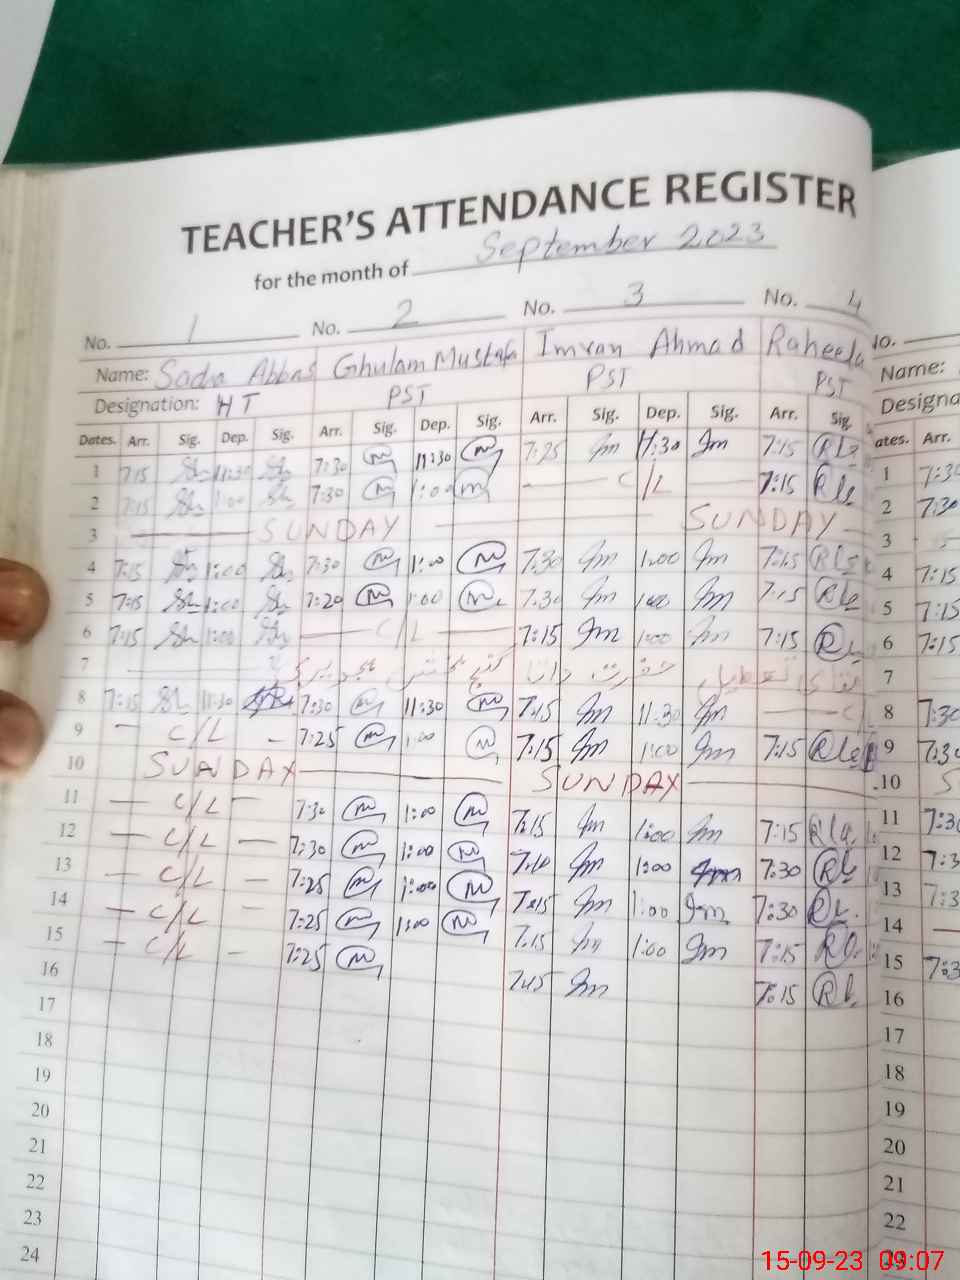 TEACHER'S ATTENDANCE REGISTER
for the month of September 2023
No. 1 No. 2 No. 3 No. 4
Name: Sadia Abbas Ghulam Mustafa Imran Ahmad Raheela
Designation: HT PST PST PST
Dates. Arr. Sig. Dep. Sig. Arr. Sig. Dep. Sig. Arr. Sig. Dep. Sig. Arr. Sig.
1 7:15 11:30 7:30 11:30 11:30 7:15
2 7:15 1:00 7:30 1:00 C/L 7:15
3 SUNDAY SUNDAY
4 7:15 1:00 7:30 1:00 7:30 1:00 7:15
5 7:15 1:00 7:20 1:00 7:30 1:00 7:15
6 7:15 1:00 C/L 7:15 1:00 7:15
7 مقامی تعطیل حضرت داتا گنج بخش ہجویری
8 7:15 11:30 7:30 11:30 7:15 11:30 C/
9 C/L 7:25 1:00 7:15 1:00 7:15
10 SUNDAY SUNDAY
11 C/L 7:30 1:00 7:15 1:00 7:15
12 C/L 7:30 1:00 7:10 1:00 7:30
13 C/L 7:25 1:00 7:15 1:00 7:30
14 C/L 7:25 1:00 7:15 1:00 7:15
15 C/L 7:25 7:15 7:15
16
17
18
19
20
21
22
23
24
No.
Name:
Designa
ates. Arr.
1 7:30
2 7:30
3
4 7:15
5 7:15
6 7:15
7
8 7:30
9 7:30
10 S
11 7:30
12 7:3
13 7:3
14
15 7:3
16
17
18
19
20
21
22
15-09-23 09:07